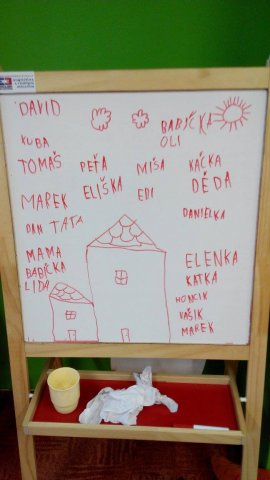 DAVID
BABIČKA
OLI
KUBA
TOMÁŠ
PEŤA
MIŠA
KAČKA
ELIŠKA
EDI
DĚDA
MAREK
DANIELKA
DAN TATA
MAMA
BABIČKA
LIDA
ELENKA
KATKA
HONCIK
VAŠIK
MAREK